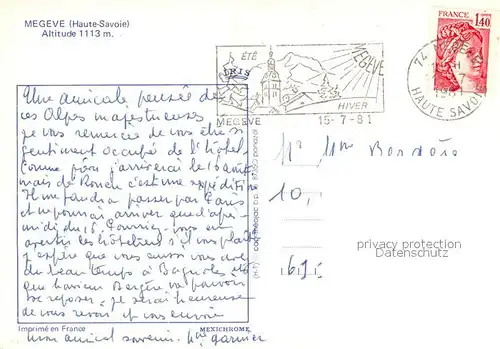 MEGEVE (Haute-Savoie)
Altitude 1113 m.
FRANCE
1,40
ÉTÉ
IRIS
MEGEVE
HIVER
MEGEVE
15-7-81
74
HAUTE SAVOIE
Une amicale pensée de
ces Alpes majestueuses
je vous remercie de vous être si
gentiment occupée de l'hôtel
Comme je j'arriverai le 16 août
mais de Rouen c'est une expédition
Il me faudra passer par Paris
et ne pourrai arriver que l'après
midi du 16. Pourriez-vous en
avertir les hôteliers s'il vous plaît
J'espère que vous aussi vous avez
du beau temps à Bagnoles et
que Monsieur Bergère va pouvoir
se reposer. Je serai heureuse
de vous revoir et vous envoie
mon amical souvenir. Mme Garnier
Mr Mme
10,
61
Imprimé en France
MEXICHROME
privacy protection
Datenschutz